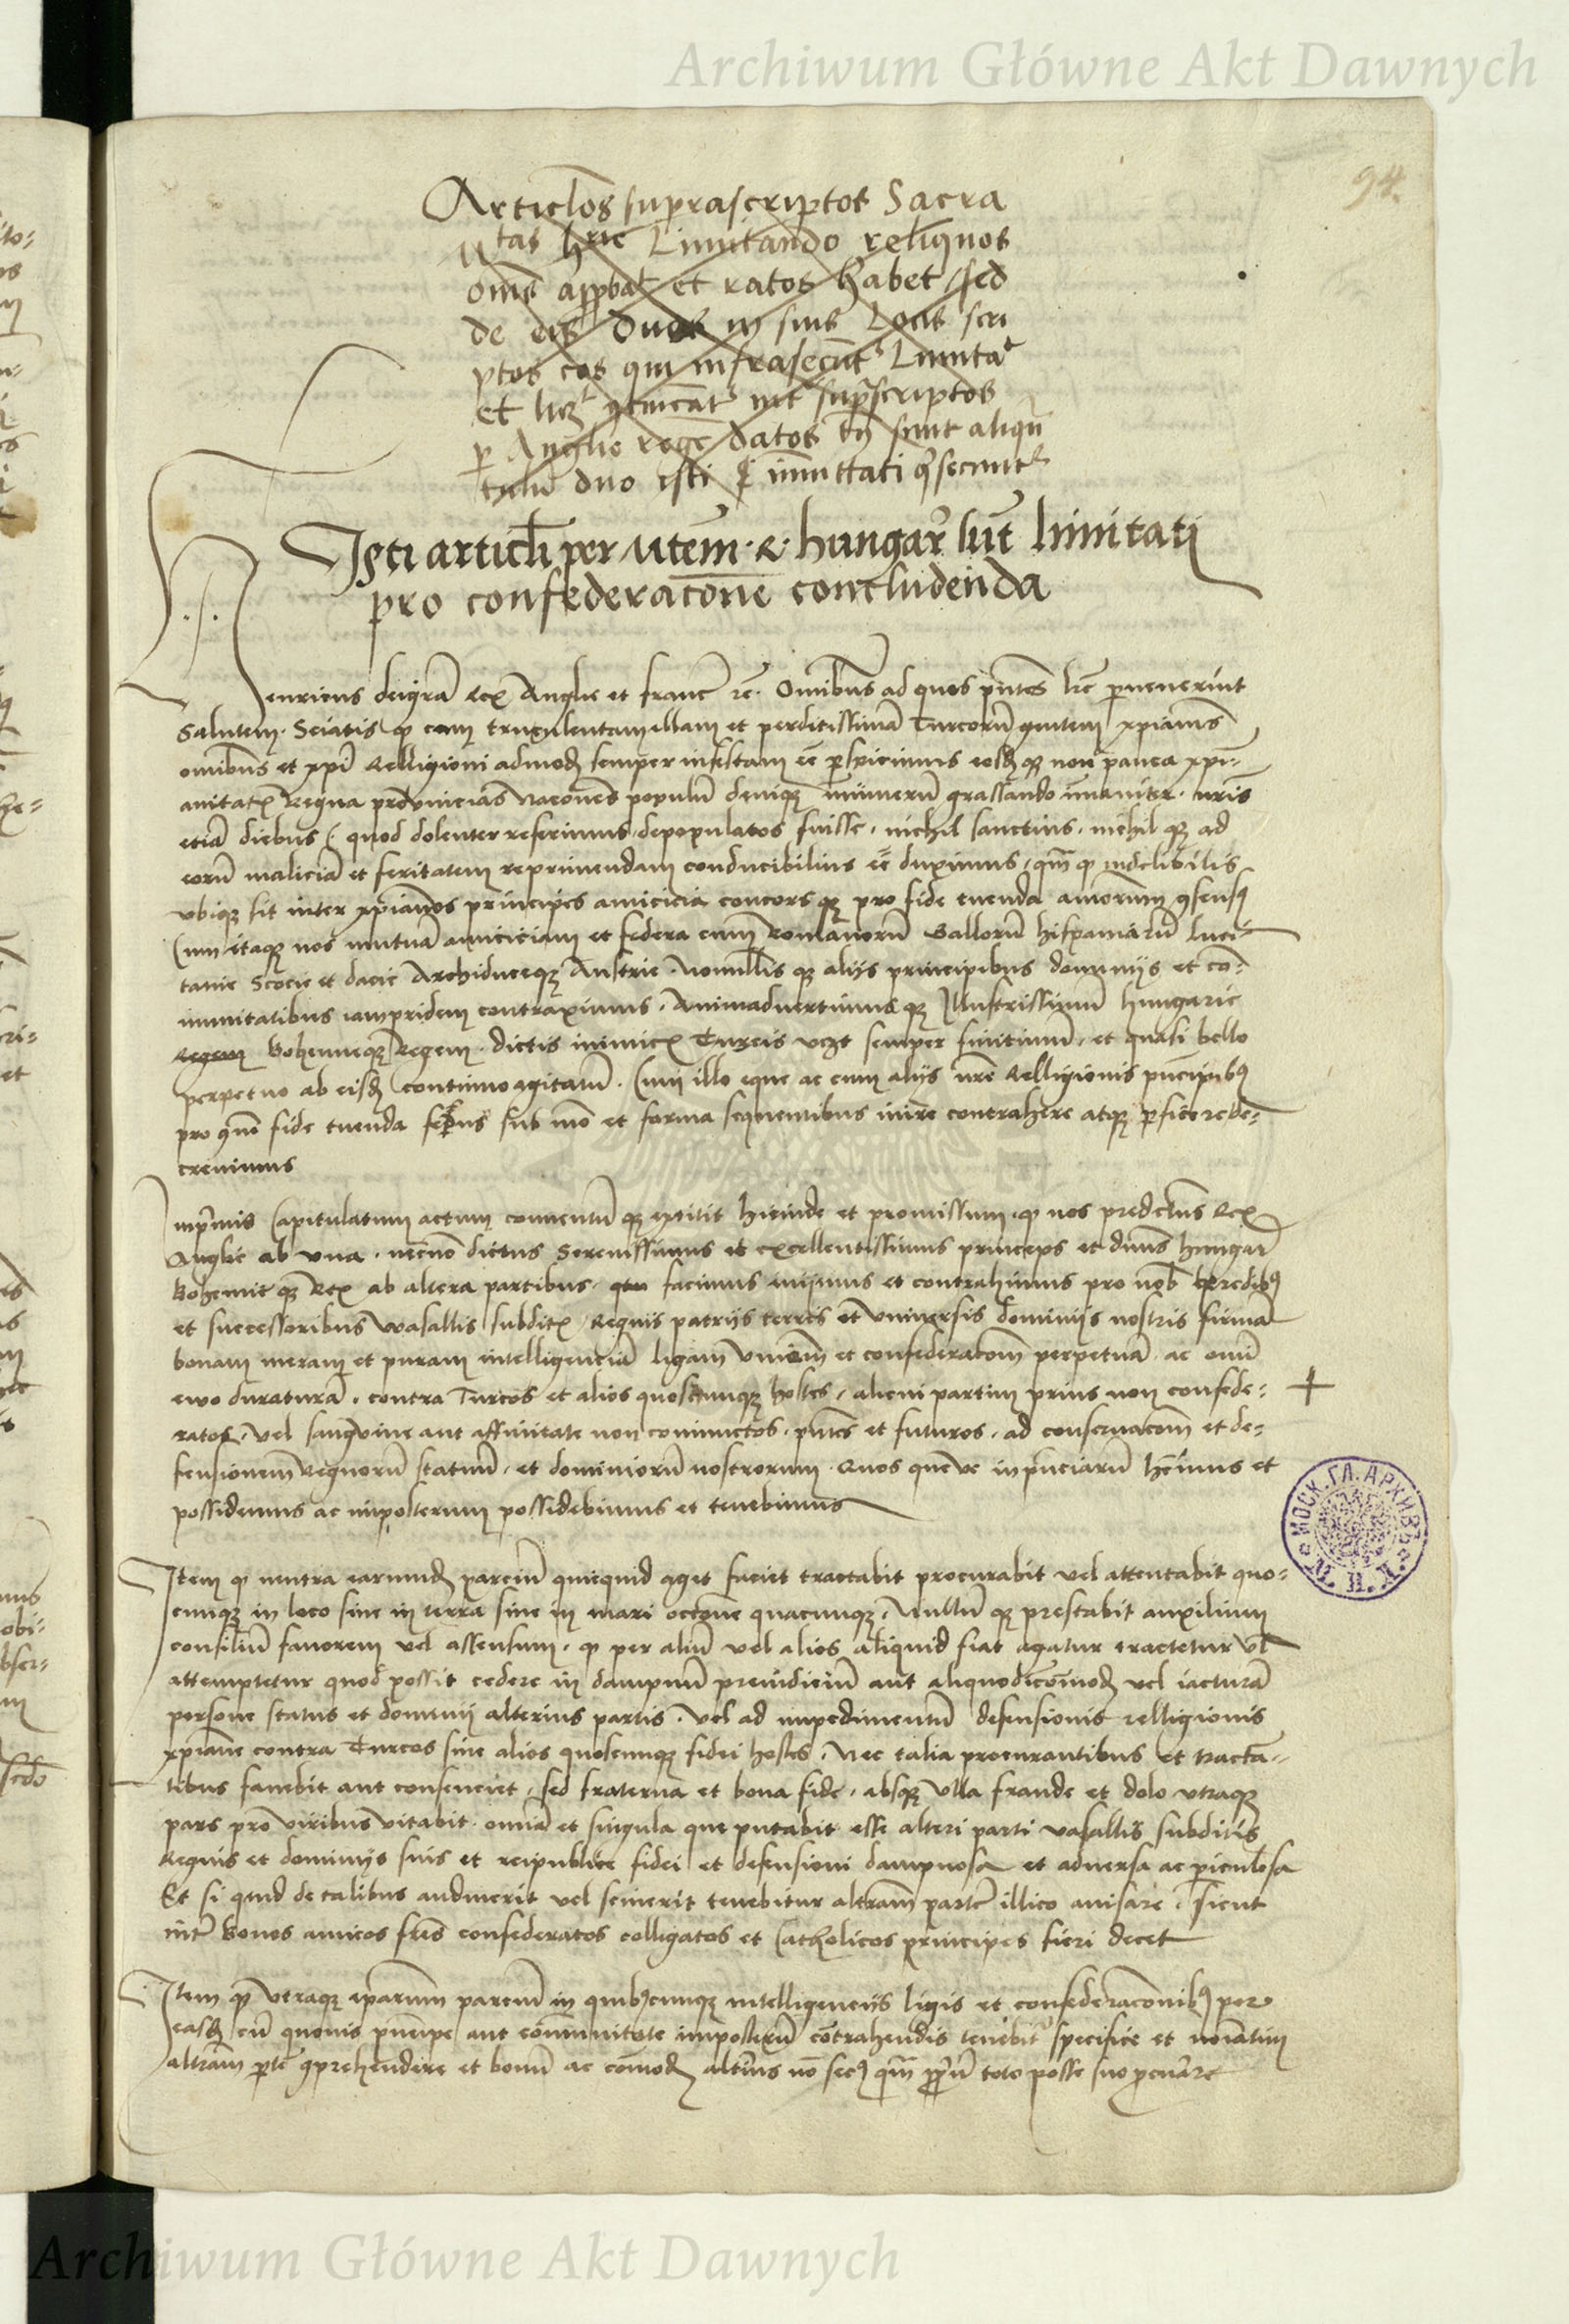 Archiwum Główne Akt Dawnych
94.
Articłos suprascriptos Sacra
Mtas hñc Limitando reliquos
om̄s approbat et ratos habet sed
de eis duos in suis Locis scri
ptos eos qui infrasecūtʳ Limitat
et licz cōtineātʳ int suprascriptos
p Anglie regē datos tn̄ sunt aliqn̄
tulū duo isti īmutati q̄ secuntʳ
Isti articłi per Mtem · R · hungar̄ sūt limitati
pro confederacōne concludenda
Henricus dei grā Rex Anglie et franc̄ rē. Omībus ad quos pn̄tes lr̄e pervenerīnt
Salutem. Sciatis q cum truculentam illam et perditissimā Turcorū gentem xpianis
omībus et xpi Relligioni admodz semper infestam eē perspicimus eosdz qz non pauca xpi-
anitatꝭ Regna provincias nacones populū deniqz inūmerū grassando īmaniter. nr̄is
etiā diebus (quod dolenter referimus depopulatos fuisse. nichil sanctius. nichil qz ad
eorū maliciā et feritatem reprimendam conducibilius eē duximus, qm̄ q indelibilis
ubiqz sit inter xpianos principes amicicia concors qz pro fide tuenda amorum ꝯsensꝰ
Cum itaqz nos mutuā amiciciam et federa cum Romanorū Gallorū hispaniarū Luci-
tanie Scocie et dacie Archiduceqz Austrie. Nonnullis qz aliis principibus dominiis et co-
munitatibus iampridem contraximus. Animadvertimus qz Illustrissimū hungarie
Regem Bohemieqz Regem. dictis inimicꝭ Turcis uczt semper finitimū, et quasi bello
perpetuo ab eisdz continuo agitatū. Cum illo eque ac cum aliis nr̄e Relligionis pn̄cipibꝰ
pro ꝯmūni fide tuenda fedus sub mō et forma sequentibus inire contrahere atqz perficere de-
crevimus
Inprimis Capitulatum actum conventū qz extitit hincinde et promissum. q nos predictus Rex
Anglie ab una. necnō dictus Serenissimus et excellentissimus princeps et dn̄us hungar̄
Bohemie qz Rex ab altera partibus. facimus inimus et contrahimus pro nob̄ heredibꝰ
et successoribus vasallis subditꝭ Regnis patriis terris et universis dominiis nostris firmā
bonam meram et puram intelligenciā ligam unionē et confederacōm perpetuā. ac omī
evo duraturā. contra Turcos et alios quoscumqz hostes, alicui partim prius non confede-
ratos, vel sanguine aut affinitate non coniunctos. pn̄tes et futuros. ad conservacōm et de-
fensionem Regnorū statuū, et dominiorū nostrorum. Quos queve inpn̄ciarū hēmus et
possidemus ac inposterum possidebimus et tenebimus
Item q neutra earumdz parciū quicquid aget faciet tractabit procurabit vel attentabit quo-
cumqz in loco sive in terra sive in mari occōne quacumqz. Nullū qz prestabit auxilium
consiliū favorem vel assensum. q per aliū vel alios aliquid fiat agatur tractetur vl
attemptetur quod possit cedere in dampnū preiudiciū aut aliquod incōmodz vel iacturā
persone status et dominii alterius partis. vel ad impedimentū defensionis relligionis
xpiane contra Turcos sive alios quoscumqz fidei hostes. Nec talia procurantibus et tracta-
tibus favebit aut consenciet, sed fraterna et bona fide, absqz ulla fraude et dolo utraqz
pars pro viribus vitabit. omnia et singula que putabit esse alteri parti vasallis subditis
Regnis et dominiis suis et reipublice fidei et defensioni dampnosa et adversa ac periculosa
Et si quid de talibus audiverit vel sciverit tenebitur alteram partē illico avisare. sicut
inter bonos amicos frēs confederatos colligatos et Catholicos principes fieri decet
Item q utraqz iparum parciū in quibꝰcumqz intelligenciis ligis et confederacōnibꝰ per
easdz cū quovis pn̄cipe aut cōmunitate imposterū contrahendis tenebitʳ specifice et noiatim
altram ptē ꝯprehendere et bonū ac cōmodz alterius nō secꝰ qm̄ ppriū toto posse suo pcurare
МОСК. ГЛ. АРХИВЪ
Archiwum Główne Akt Dawnych